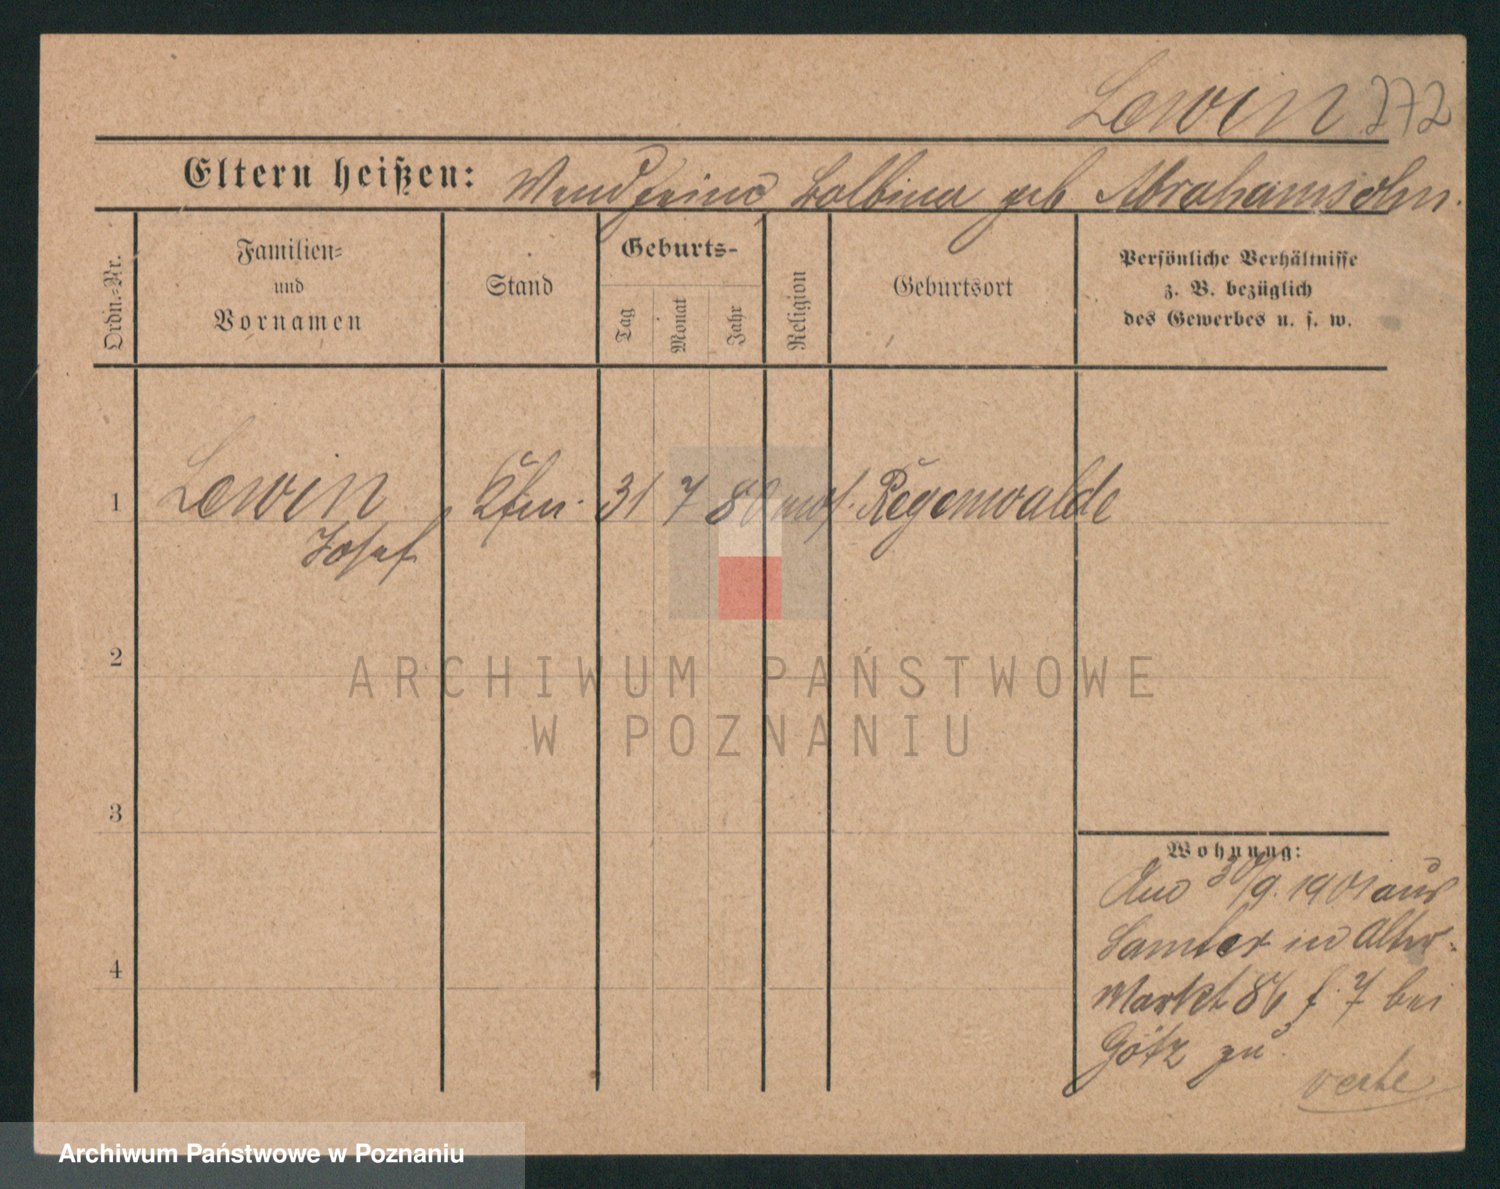 Lewin 272
Eltern heißen: Balbina geb Abrahamsohn.
Ordn.-Nr.
Familien-
und
Vornamen
Stand
Geburts-
Tag
Monat
Jahr
Religion
Geburtsort
Persönliche Verhältnisse
z. B. bezüglich
des Gewerbes u. s. w.
1 Lewin Kfm. 31 7 80 mos. Regenwalde
Josef
2
ARCHIWUM PAŃSTWOWE
W POZNANIU
3
Wohnung:
30/9. 1901 aus
Samter in Alter
4
Markt 86 f. 7 bei
Götz zu
verte
Archiwum Państwowe w Poznaniu